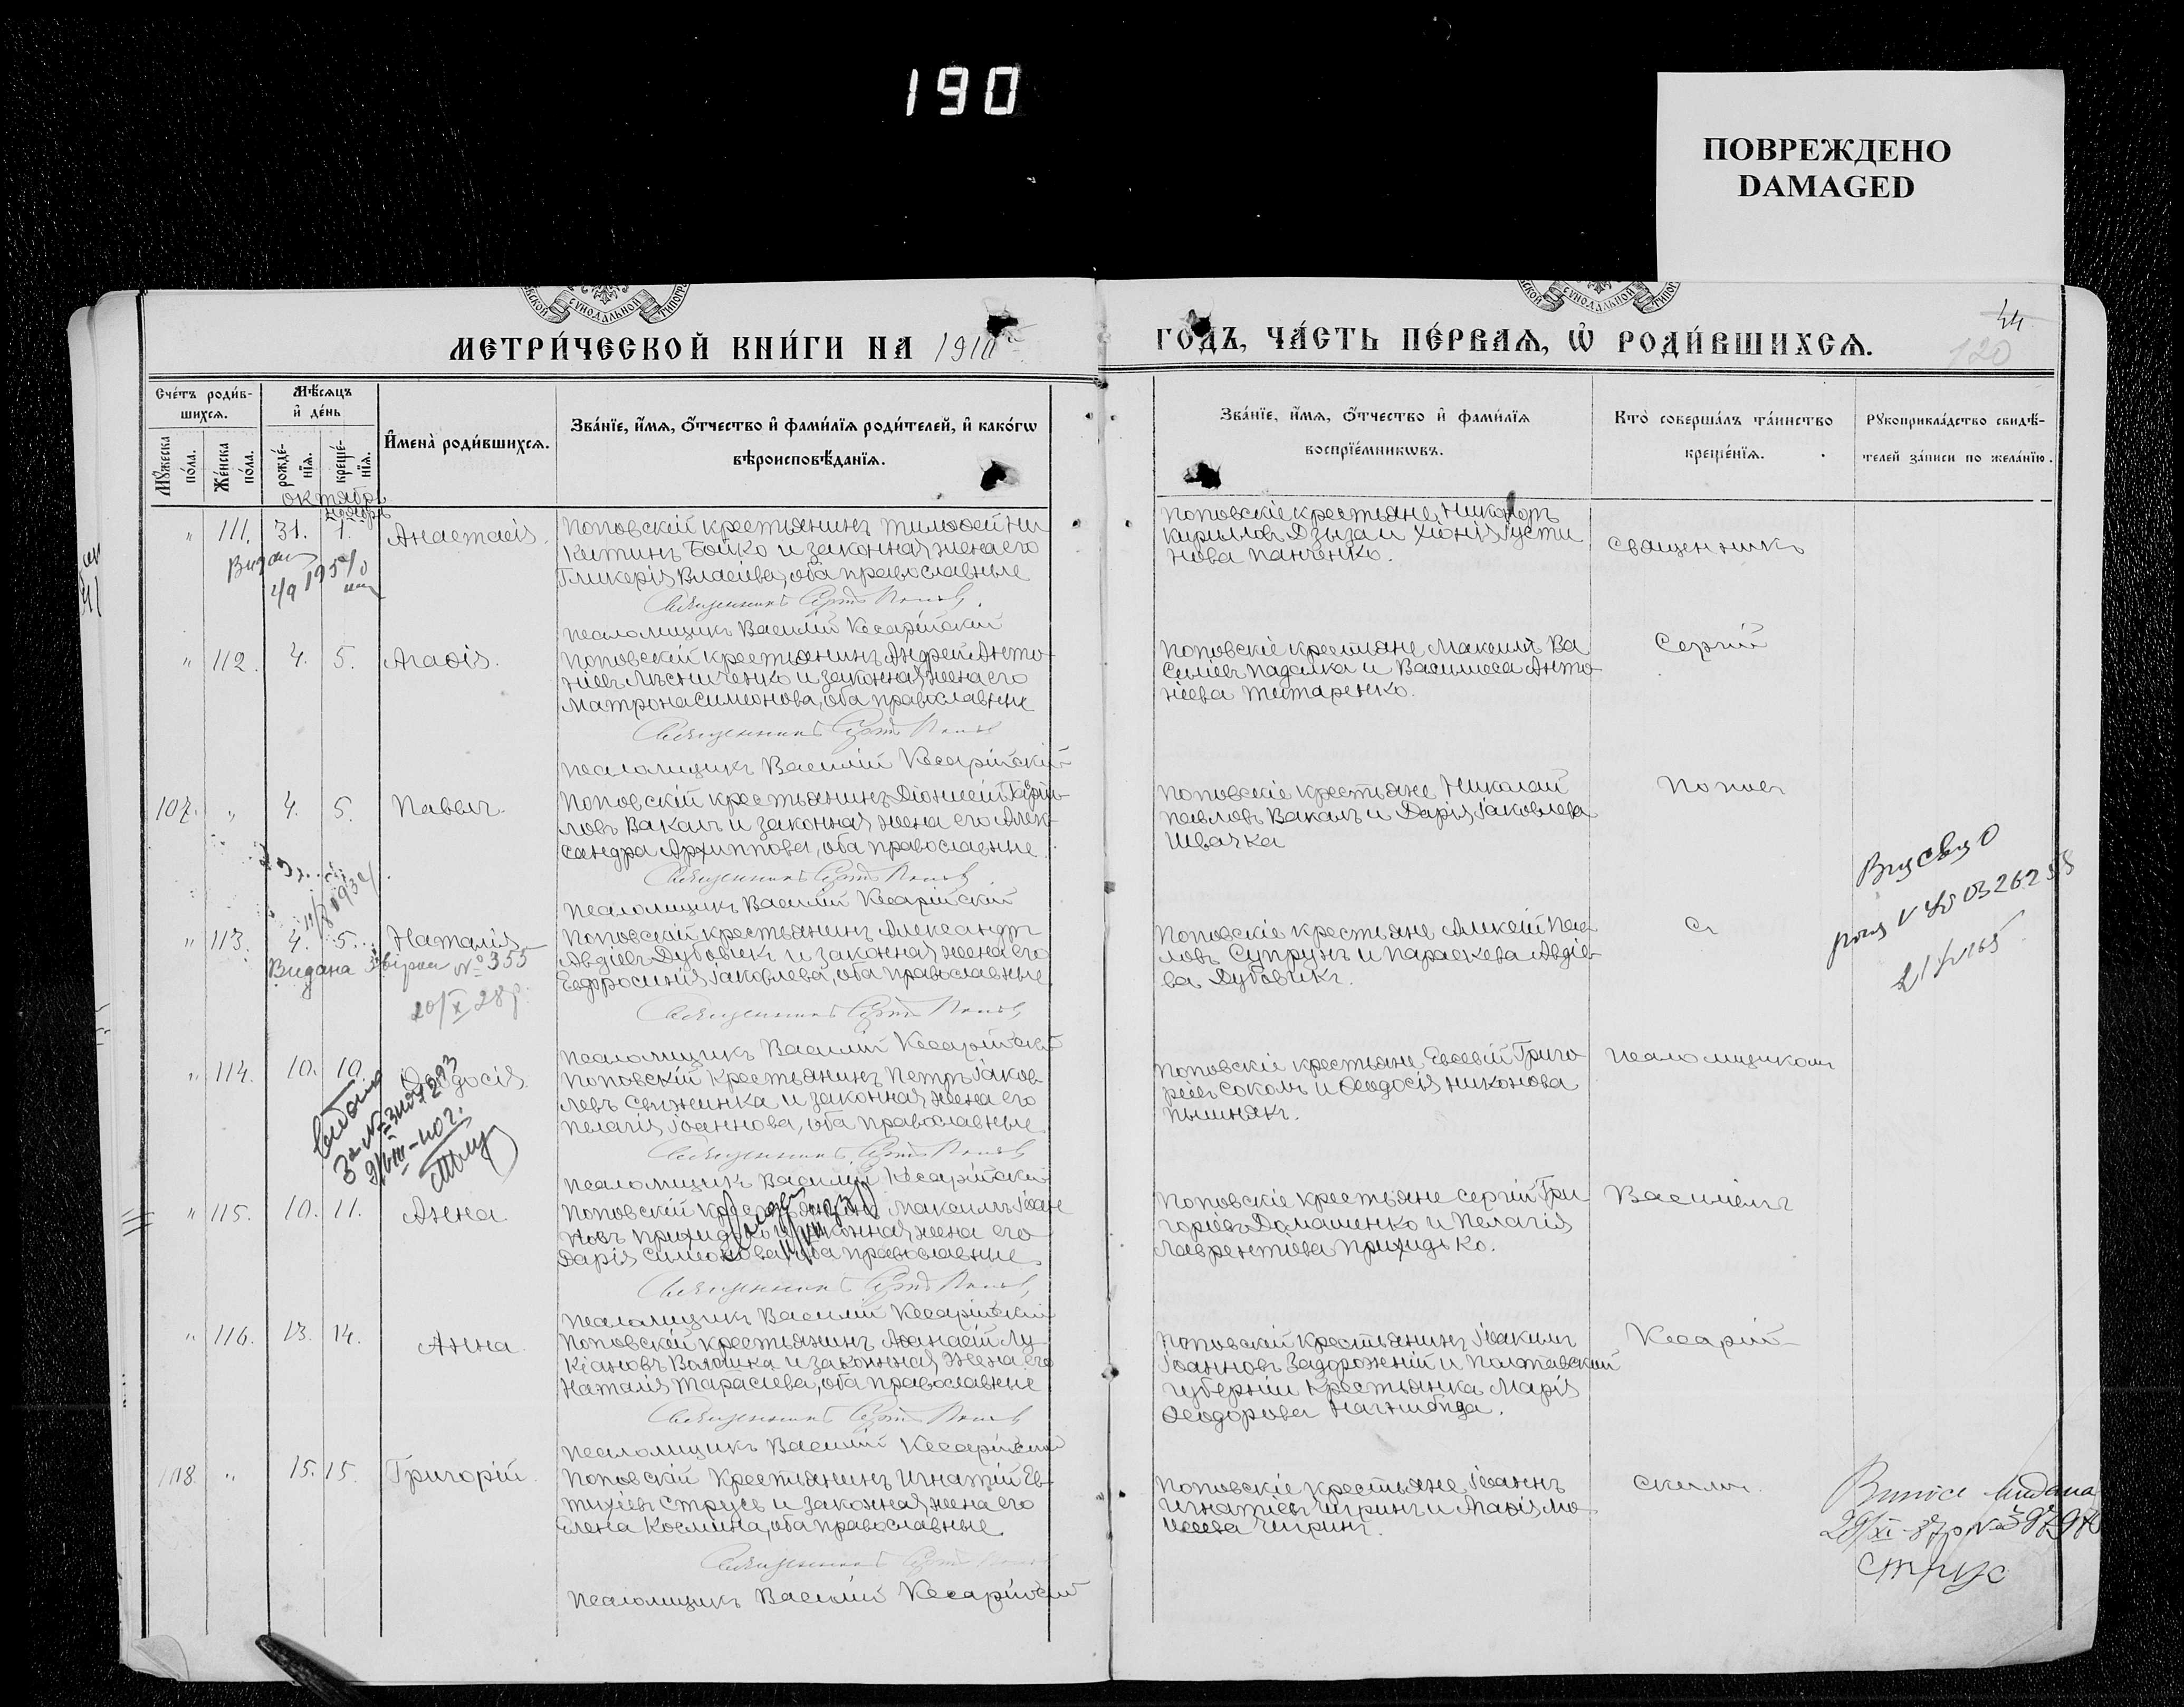 190
ПОВРЕЖДЕНО
DAMAGED
МЕТРИ́ЧЕСКОЙ КНИ́ГИ НА 1910
ГОДЪ, ЧА́СТЬ ПЕ́РВАЯ, Ѡ РОДИ́ВШИХСЯ.
44
120
Сче́тъ роди́в-
шихся.
Мѣ́сяцъ
и҆ де́нь
Мꙋ́жеска по́ла.
Же́нска по́ла.
рожде́-
нїя.
креще́-
нїя.
И҆мена̀ роди́вшихся.
Зва́нїе, и҆́мя, ѻ҆́тчество и҆ фами́лїя роди́телей, и҆ како́гѡ
вѣроисповѣ́данїя.
Зва́нїе, и҆́мя, ѻ҆́тчество и҆ фами́лїя
воспрїе́мникѡвъ.
Кто̀ соверша́лъ та́инство
креще́нїя.
Рꙋкоприкла́дство свидѣ́-
телей за́писи по жела́нїю.
октября
ноября
" 111. 31. 1. Анастасія.
Поповскій крестьянинъ Тимоѳей Ни
китинъ Бойко и законная жена его
Гликерія Власіева, оба православные
Священникъ Сергій Поповъ
Псаломщикъ Василій Кесарійскій
Поповскіе крестьяне, Никаноръ
Кирилловъ Дзыза и Хіонія Іусти
нова Панченко.
Священникъ
" 112. 4. 5. Агаѳія.
Поповскій крестьянинъ Андрей Анто-
ніевъ Мѣсниченко и законная жена его
Матрона Симеонова, оба православные
Священникъ Сергій Поповъ
Псаломщикъ Василій Кесарійскій
Поповскіе крестьяне Максимъ Ва
силіевъ Падалка и Василиса Анто-
ніева Титаренко.
Сергій
107. " 4. 5. Павелъ.
Поповскій крестьянинъ Діонисій Гаврі-
ловъ Вакалъ и законная жена его Алек-
сандра Архиппова, оба православные
Священникъ Сергій Поповъ
Псаломщикъ Василій Кесарійскій
Поповскіе крестьяне Николай
Павловъ Вакалъ и Дарія Іаковлева
Швачка
Поповъ
" 113. 4. 5. Наталія
Видана №355
20/X 28 р.
Поповскій крестьянинъ Александръ
Авдіевъ Дубовикъ и законная жена его
Евфросинія Іаковлева, оба православные
Священникъ Сергій Поповъ
Псаломщикъ Василій Кесарійскій
Поповскіе крестьяне Алексій Пав-
ловъ Супрунъ и Параскева Авдіе-
ва Дубовикъ.
съ
" 114. 10. 10. Ѳеодосія
Поповскій крестьянинъ Петръ Іаков
левъ Свинка и законная жена его
Пелагія Іоаннова, оба православные
Священникъ Сергій Поповъ
Псаломщикъ Василій Кесарійскій
Поповскіе крестьяне Евсевій Григо
ріевъ Соколъ и Ѳеодосія Никонова
Пышнякъ.
Псаломщикомъ
" 115. 10. 11. Анна
Поповскій крестьянинъ Максимъ Іоан
новъ Приходько и законная жена его
Дарія Симеонова оба православные.
Священникъ Сергій Поповъ
Псаломщикъ Василій Кесарійскій
Поповскіе крестьяне Сергій Гри-
горіевъ Домашенко и Пелагія
Лаврентіева Приходько.
Василіемъ
" 116. 13. 14. Анна.
Поповскій крестьянинъ Аѳанасій Лу
кіановъ Волошка и законная жена его
Наталія Тарасіева, оба православные
Священникъ Сергій Поповъ
Псаломщикъ Василій Кесарійскій
Поповскій крестьянинъ Іоакимъ
Іоанновъ Задорожній и Полтавской
губерніи крестьянка Марія
Ѳеодорова Нагнибида.
Кесарій-
108. " 15. 15. Григорій.
Поповскій крестьянинъ Игнатій Ев-
тихіевъ Струсь и законная жена его
Елена Космина, оба православные
Священникъ Сергій Поповъ
Псаломщикъ Василій Кесарійскій
Поповскіе крестьяне Іоаннъ
Игнатіевъ Чигринъ и Марія Мо
исеева Чигринъ.
скимъ.